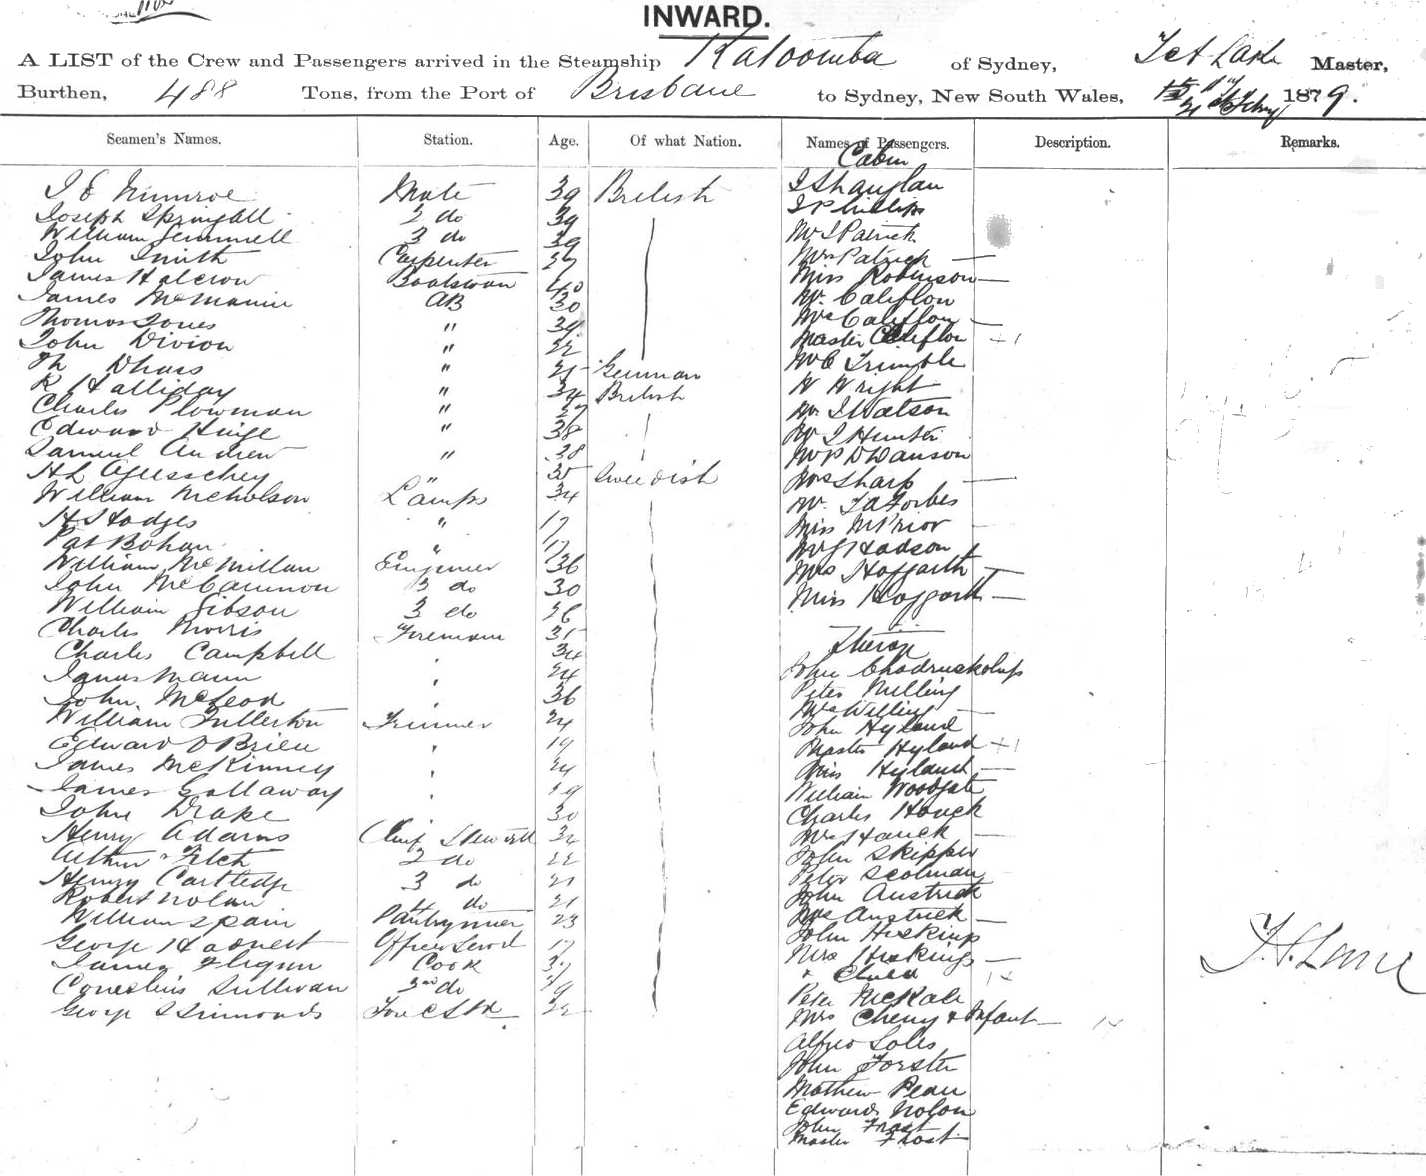 INWARD.
A LIST of the Crew and Passengers arrived in the Steamship Katoomba of Sydney, Master,
Burthen, 488 Tons, from the Port of Brisbane to Sydney, New South Wales, 1879.
Seamen's Names. Station. Age. Of what Nation. Names of Passengers. Description. Remarks.
Cabin
J E Munroe Mate 39 British J Shanglan
Joseph Springall 2 do 39 J Phillips
William Gemmell 3 do 39 Mr J Patrick
John Smith Carpenter 27 Mrs Patrick —
James Halcrow Boatswain 40 Miss Robinson —
James McManin AB 30 Mr Califlon
Thomas Jones " 39 Mrs Califlon —
John Divion " 22 Master Califlon + 1
Th Dhass " 21 German Mr C Trumble
R Halliday " 34 British W Wright
Charles Plowman " 27 Mr J Watson
Edward Hinge " 38 Mr J Hunter
Samuel Andrew " 38 Mr P D Dawson
H L " 35 Swedish Mrs Sharp —
William Nicholson Lamps 34 Mr Forbes
H Hodges " 17 Miss M Prior —
Pat Bohan " 17 Mr J Hodson
William McMillan Engineer 36 Mrs Hoggarth —
John McCammon do 30 Miss Hoggarth —
William Gibson 3 do 26
Charles Morris Fireman 31
Charles Campbell 34 John
James Mann 24 Peter Milling
John McLeod 36 Mrs Milling —
William Fullerton Trimmer 24 John Hyland
Edward O Brien 19 Master Hyland + 1
James McKinney 24 Miss Hyland —
James Gallaway 19 William Woodgate
John Drake 30 Charles Houck
Henry Adams Chief Steward 32 Mrs Houck —
Arthur Fitch 2 do 22 John Skipper
Henry Cartledge 3 do 21 Peter Scotman
Robert Nolan 4 do 21 John Austrick
William Spain Pantryman 23 Mrs Austrick —
George Officer Servt 17 John Hiskings
James Flignn Cook 37 Mrs Hiskings —
Cornelius Sullivan 2nd do 19 & Child
George S Simmonds Fore C Std 32 Peter McKale
Mrs Cheny & Infant —
Alfred Soles
John Forster
Mathew Pean
Edward Nolon
John Frost
Master Frost